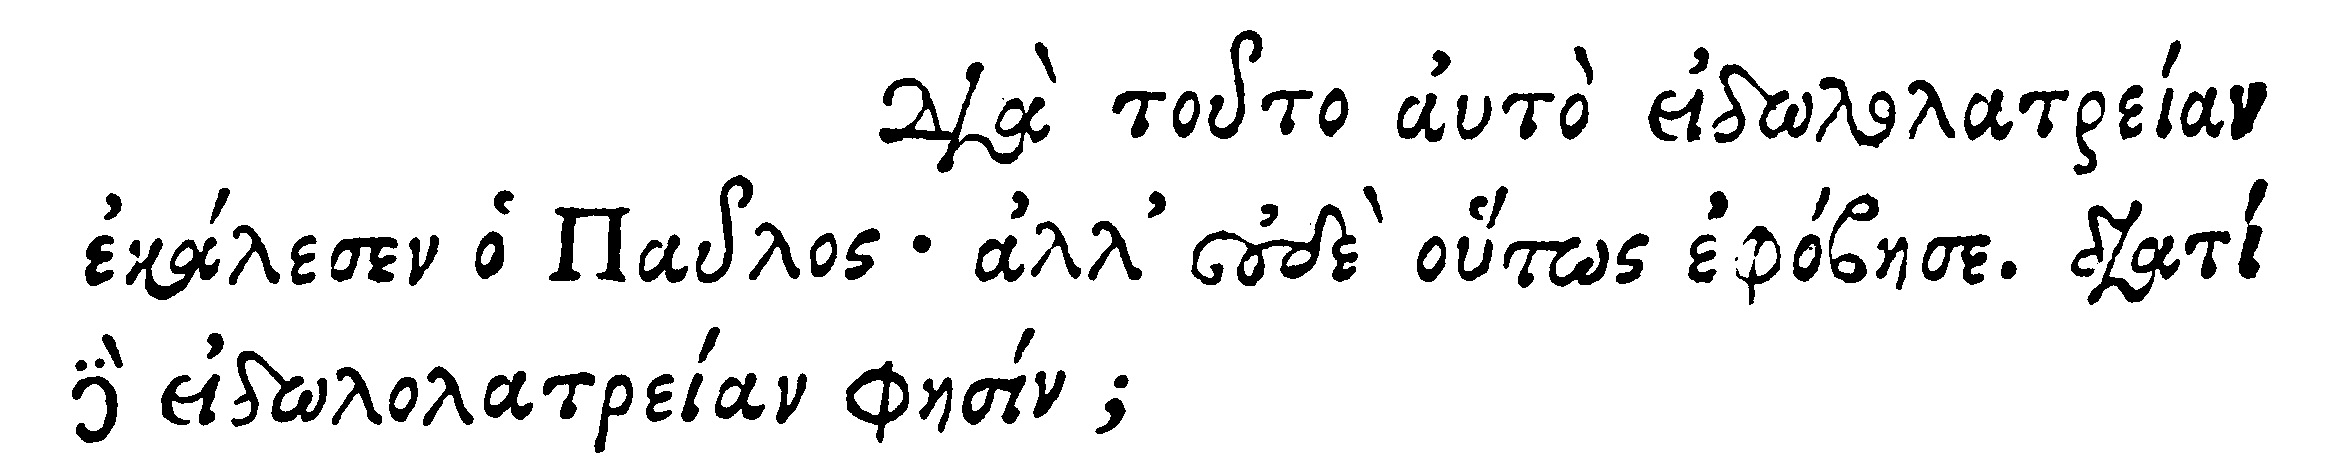 Διὰ τοῦτο ἀυτὸ εἰδωλολατρείαν
ἐκάλεσεν ὁ Παῦλος · ἀλλ’ οὐδὲ οὕτως ἐφόβησε. διατί
γὰρ εἰδωλολατρείαν φησίν ;